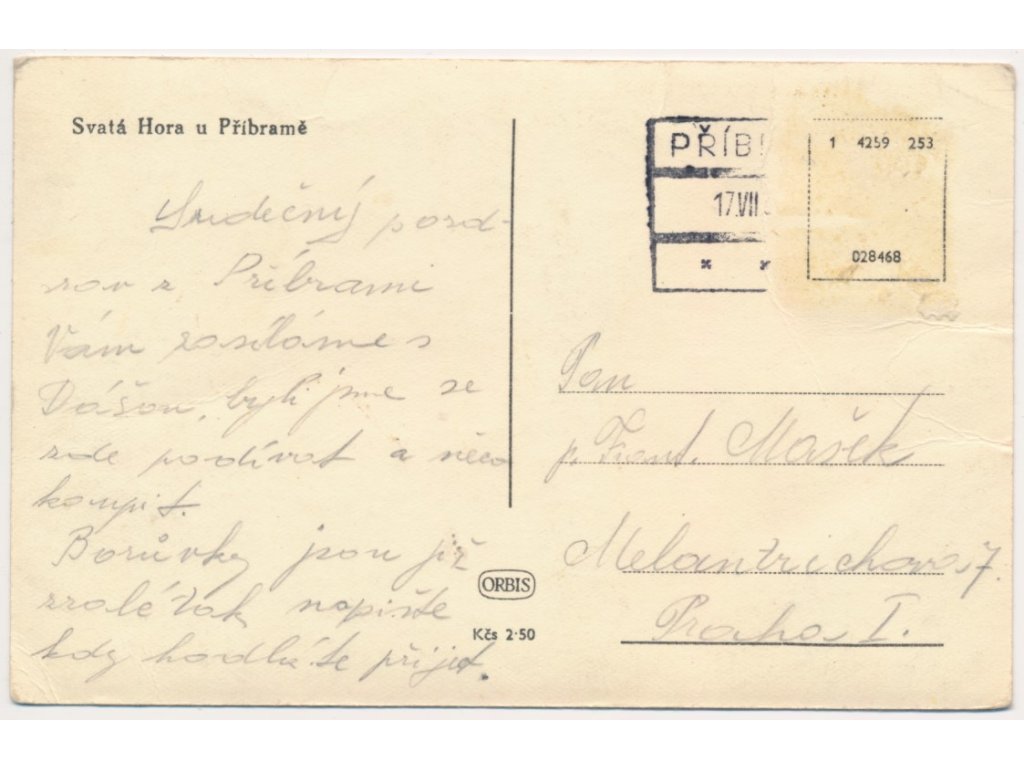 Svatá Hora u Příbramě
Srdečný pozd-
rav z Příbrami
Vám zasíláme s
Dášou, byli jsme se
zde podívat a něco
koupit.
Borůvky jsou již
zralé tak napište
kdy hodláte přijet.
ORBIS
Kčs 2·50
PŘÍB
17.VII
1 4259 253
028468
Pan
p. Frant. Mašek
Melantrichova 7.
Praha I.